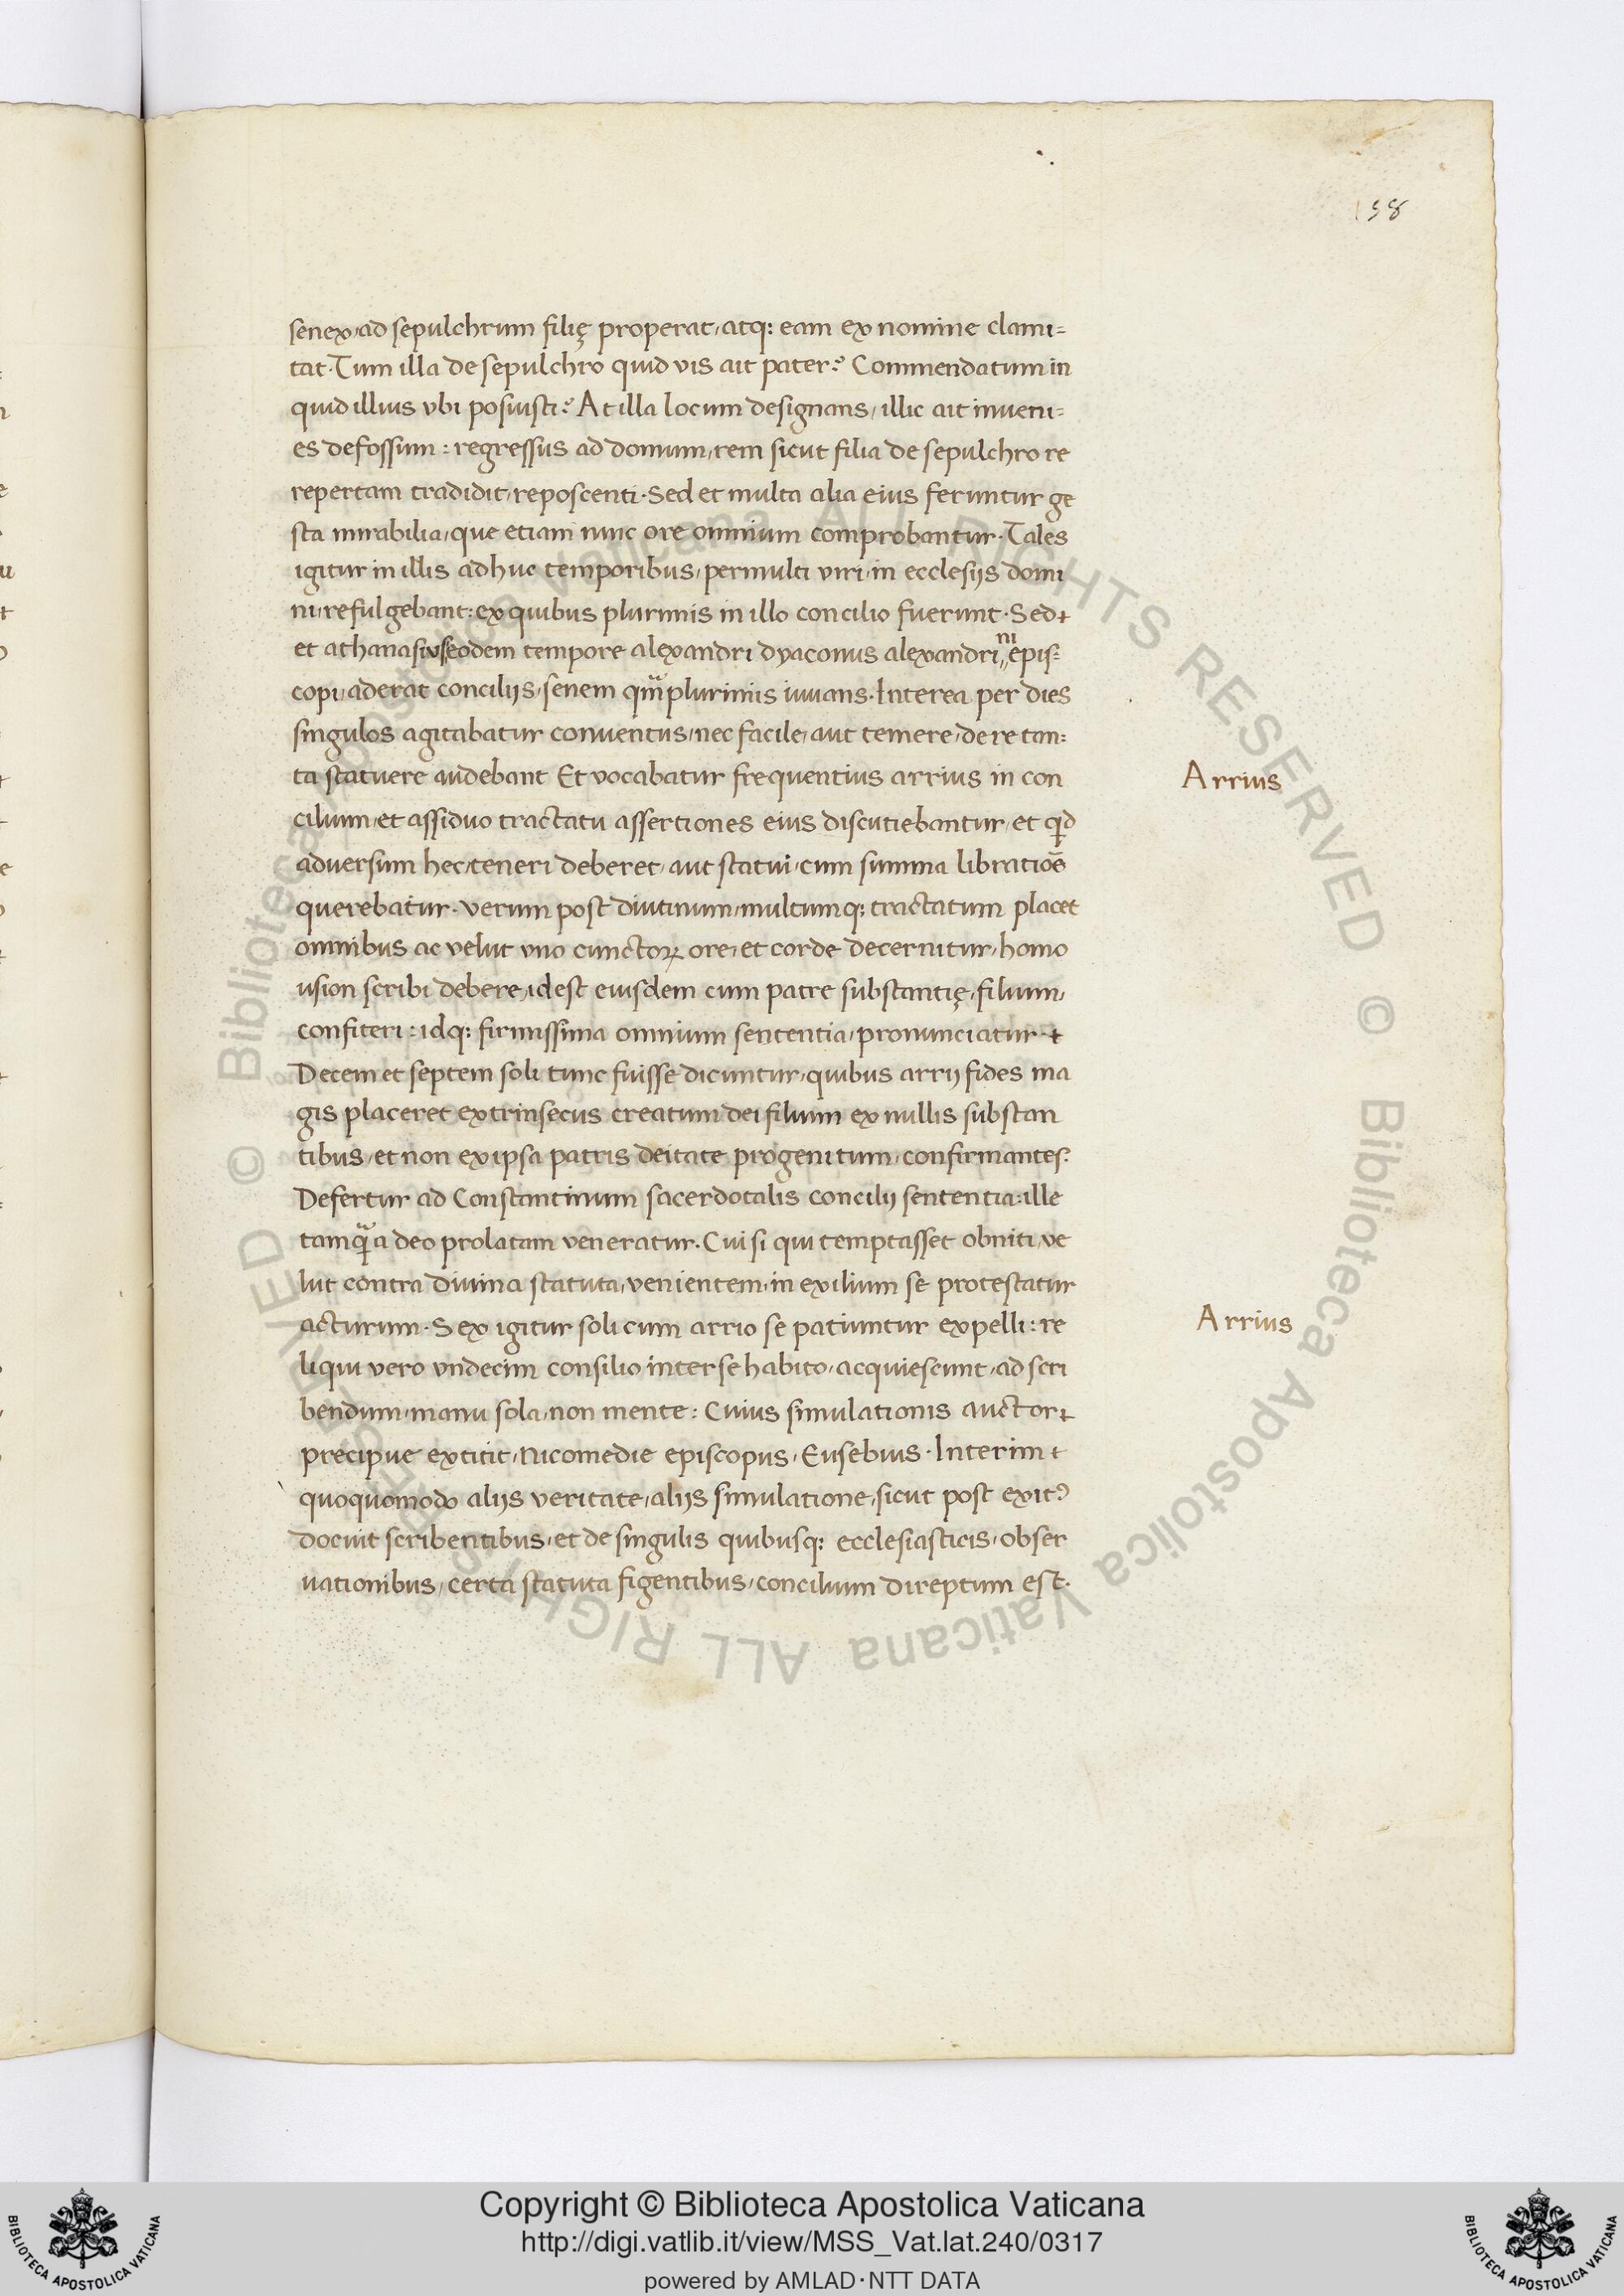 158
senex, ad sepulchrum filię properat, atq; eam ex nomine clami=
tat. Tum illa de sepulchro quid vis ait pater? Commendatum in
quid illius vbi posuisti? At illa locum designans, illic ait inueni=
es defossum: regressus ad domum, rem sicut filia de sepulchro re
repertam tradidit, reposcenti. Sed et multa alia eius feruntur ge
sta mirabilia, que etiam nunc ore omnium comprobantur. Tales
igitur in illis adhuc temporibus, permulti viri, in ecclesijs domi
ni, refulgebant: ex quibus plurimis in illo concilio fuerunt. Sed
et athanasius eodem tempore alexandri dyaconus alexandrini epis=
copi, aderat concilijs, senem qm̃ plurimis iuuans. Interea per dies
singulos agitabatur conuentus, nec facile, aut temere, de re tan=
ta statuere audebant Et vocabatur frequentius arrius in con
Arrius
cilium, et assiduo tractatu assertiones eius discutiebantur, et qd
aduersum hec, teneri deberet, aut statui, cum summa libratiõe
querebatur. verum post diutinum, multumq; tractatum placet
omnibus ac velut vno cunctoꝝ ore, et corde decernitur, homo
usion scribi debere, idest eiusdem cum patre substantię, filium,
confiteri: idq; firmissima omnium sententia, pronunciatur.
Decem et septem soli tunc fuisse dicuntur, quibus arrij fides ma
gis placeret extrinsecus creatum dei filium ex nullis substan
tibus, et non ex ipsa patris deitate progenitum, confirmantes.
Defertur ad Constantinum sacerdotalis concilij sententia: ille
tamq̃ a deo prolatam veneratur. Cui si qui temptasset obniti, ve
lut contra diuina statuta, venientem, in exilium se protestatur
acturum. Sex igitur soli cum arrio se patiuntur expelli: re
Arrius
liqui vero vndecim consilio inter se habito, acquiescunt, ad scri
bendum, manu sola, non mente: Cuius simulationis auctor
precipue extitit, Nicomedie episcopus, Eusebius. Interim
quoquomodo alijs veritate, alijs simulatione, sicut post exit9
docuit scribentibus, et de singulis quibusq; ecclesiasticis, obser
uationibus, certa statuta figentibus, concilium direptum est.
© Biblioteca Apostolica Vaticana ALL RIGHTS RESERVED © Biblioteca Apostolica Vaticana ALL RIGHTS RESERVED
Copyright © Biblioteca Apostolica Vaticana
http://digi.vatlib.it/view/MSS_Vat.lat.240/0317
powered by AMLAD·NTT DATA
BIBLIOTECA APOSTOLICA VATICANA
BIBLIOTECA APOSTOLICA VATICANA